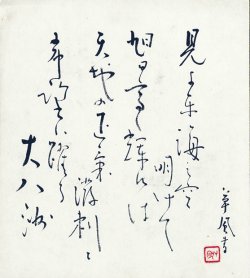 見よ東海の空
明けて
旭日高く輝けば
天地の正氣
潑剌と
希望は躍る
大八洲